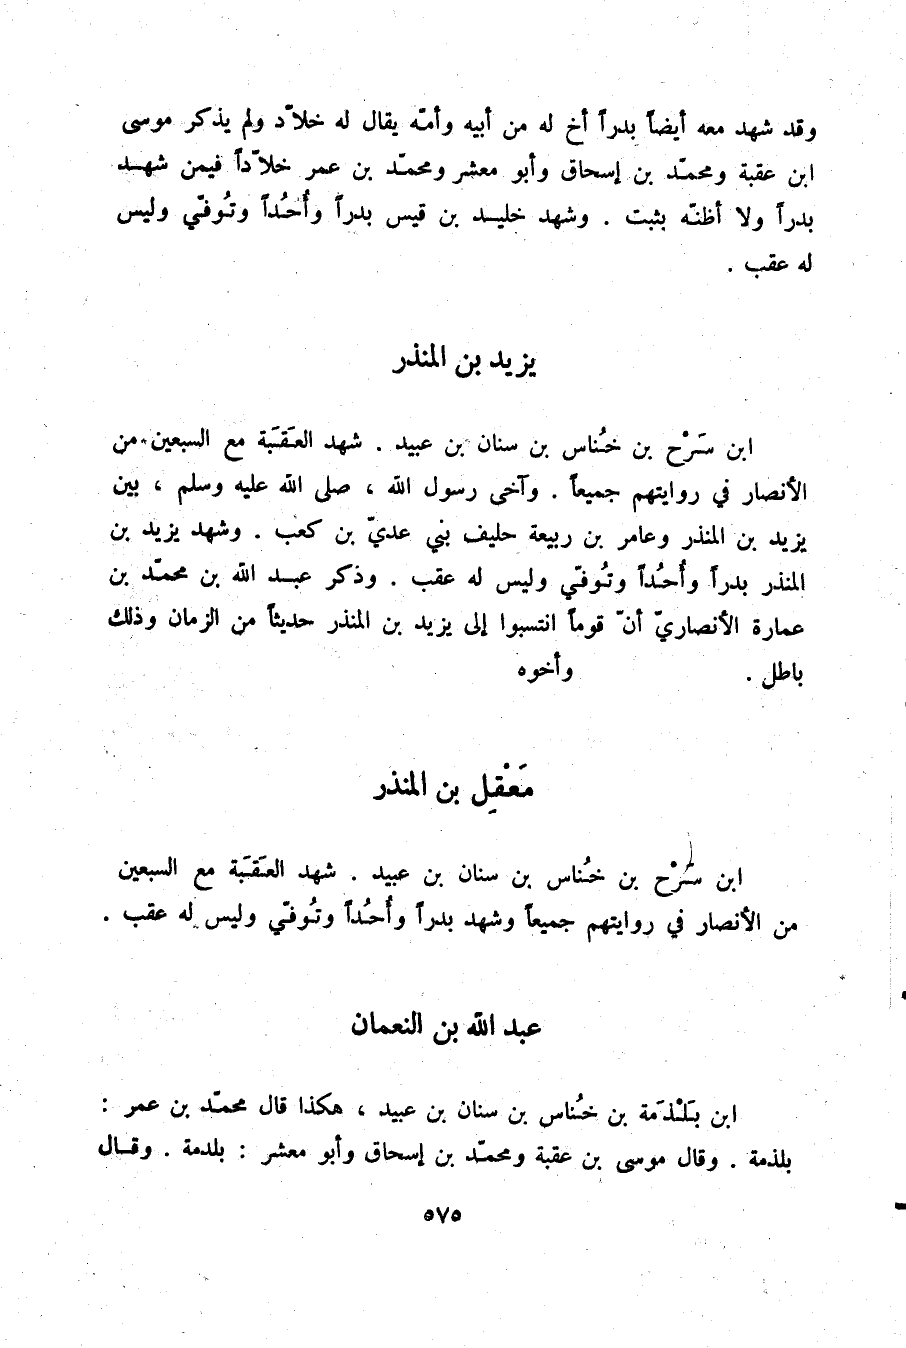 وقد شهد معه أيضاً بدراً أخ له من أبيه وأمّه يقال له خلاّد ولم يذكر موسى
ابن عقبة ومحمّد بن إسحاق وأبو معشر ومحمّد بن عمر خلاّداً فيمن شهد
بدراً ولا أظنّه بثبت . وشهد خليد بن قيس بدراً وأُحُداً وتُوفّي وليس
له عقب .
يزيد بن المنذر
ابن سَرْح بن خُناس بن سنان بن عبيد . شهد العَقَبَة مع السبعين من
الأنصار في روايتهم جميعاً . وآخى رسول الله ، صلى الله عليه وسلم ، بين
يزيد بن المنذر وعامر بن ربيعة حليف بني عديّ بن كعب . وشهد يزيد بن
المنذر بدراً وأُحُداً وتُوفّي وليس له عقب . وذكر عبد الله بن محمّد بن
عمارة الأنصاريّ أنّ قوماً انتسبوا إلى يزيد بن المنذر حديثاً من الزمان وذلك
باطل . وأخوه
مَعْقِل بن المنذر
ابن سَرْح بن خُناس بن سنان بن عبيد . شهد العَقَبَة مع السبعين
من الأنصار في روايتهم جميعاً وشهد بدراً وأُحُداً وتُوفّي وليس له عقب .
عبد الله بن النعمان
ابن بَلْذَمة بن خُناس بن سنان بن عبيد ، هكذا قال محمّد بن عمر :
بلذمة . وقال موسى بن عقبة ومحمّد بن إسحاق وأبو معشر : بلدمة . وقال
٥٧٥